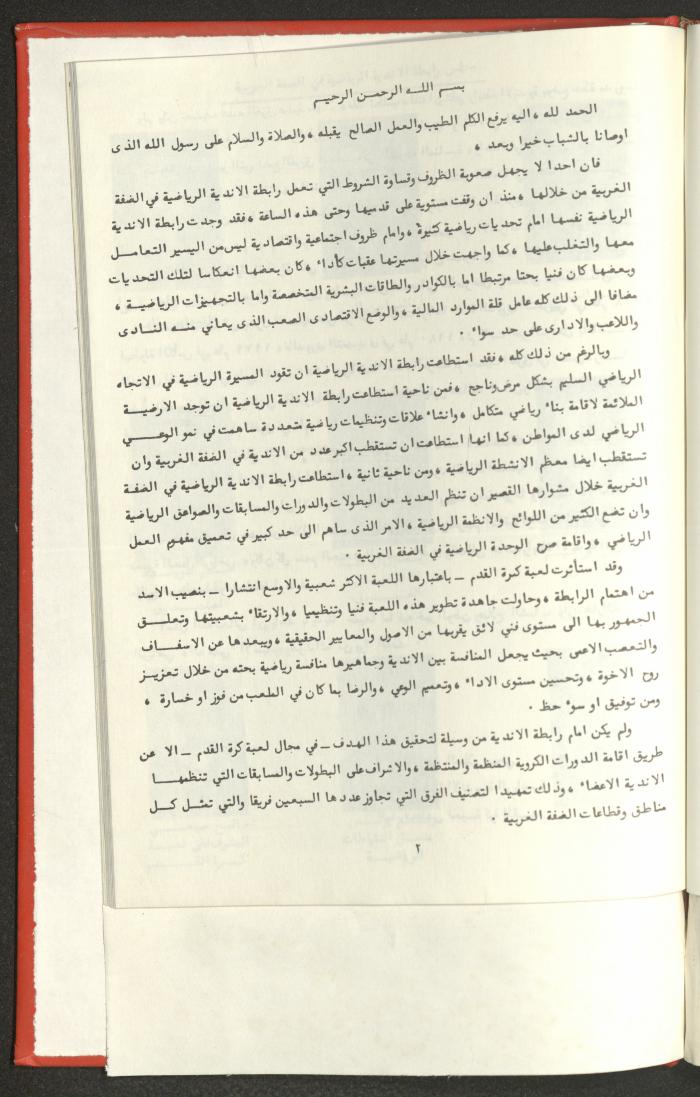 بسم اللـه الرحمـن الرحيـم
الحمد لله ، اليه يرفع الكلم الطيب والعمل الصالح يقبله ، والصلاة والسلام على رسول الله الذى
اوصانا بالشباب خيرا وبعد ،
فان احدا لا يجهل صعوبة الظروف وقساوة الشروط التي تعمل رابطة الاندية الرياضية في الضفة
الغربية من خلالها ، منذ ان وقفت مستوية على قدميها وحتى هذه الساعة ، فقد وجدت رابطة الاندية
الرياضية نفسها امام تحديات رياضية كثيرة ، وامام ظروف اجتماعية واقتصادية ليس من اليسير التعامـل
معها والتغلب عليها ، كما واجهت خلال مسيرتها عقبات كأداء ، كان بعضها انعكاسا لتلك التحديات
وبعضها كان فنيا بحتا مرتبطا اما بالكوادر والطاقات البشرية المتخصصة واما بالتجهيزات الرياضيـة ،
مضافا الى ذلك كله عامل قلة الموارد المالية ، والوضع الاقتصادى الصعب الذى يعاني منـه النـادى
واللاعب والادارى على حد سواء .
وبالرغم من ذلك كله ، فقد استطاعت رابطة الاندية الرياضية ان تقود المسيرة الرياضية في الاتجاه
الرياضي السليم بشكل مرض وناجح ، فمن ناحية استطاعت رابطة الاندية الرياضية ان توجد الارضيـة
الملائمة لاقامة بناء رياضي متكامل ، وانشاء علاقات وتنظيمات رياضية متعددة ساهمت في نمو الوعـي
الرياضي لدى المواطن ، كما انها استطاعت ان تستقطب اكبر عدد من الاندية في الضفة الغربية وان
تستقطب ايضا معظم الانشطة الرياضية ، ومن ناحية ثانية ، استطاعت رابطة الاندية الرياضية في الضفـة
الغربية خلال مشوارها القصير ان تنظم العديد من البطولات والدورات والمسابقات والصواعق الرياضية
وان تضع الكثير من اللوائح والانظمة الرياضية ، الامر الذى ساهم الى حد كبير في تعميق مفهوم العمل
الرياضي ، واقامة صرح الوحدة الرياضية في الضفة الغربية .
وقد استأثرت لعبة كرة القدم ــ باعتبارها اللعبة الاكثر شعبية والاوسع انتشارا ــ بنصيب الاسد
من اهتمام الرابطة ، وحاولت جاهدة تطوير هذه اللعبة فنيا وتنظيميا ، والارتقاء بشعبيتها وتعلـق
الجمهور بها الى مستوى فني لائق يقربها من الاصول والمعايير الحقيقية ، ويبعدها عن الاسفـاف
والتعصب الاعمى بحيث يجعل المنافسة بين الاندية وجماهيرها منافسة رياضية بحته من خلال تعزيـز
روح الاخوة ، وتحسين مستوى الاداء ، وتعميم الوعي ، والرضا بما كان في الملعب من فوز او خسارة ،
ومن توفيق او سوء حظ .
ولم يكن امام رابطة الاندية من وسيلة لتحقيق هذا الهدف ــ في مجال لعبة كرة القدم ــ الا عن
طريق اقامة الدورات الكروية المنظمة والمنتظمة ، والاشراف على البطولات والمسابقات التي تنظمهـا
الاندية الاعضاء ، وذلك تمهيدا لتصنيف الفرق التي تجاوز عددها السبعين فريقا والتي تمثل كـل
مناطق وقطاعات الضفة الغربية .
٢